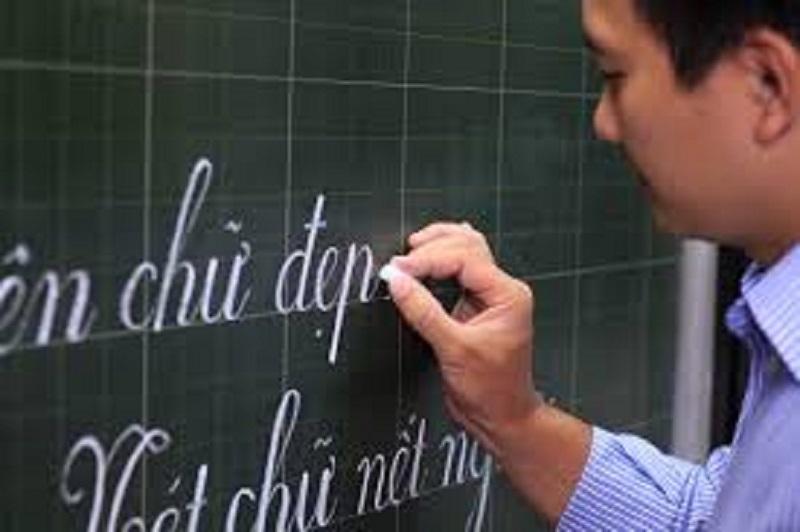 ên chữ đẹp
Nét chữ nết ng